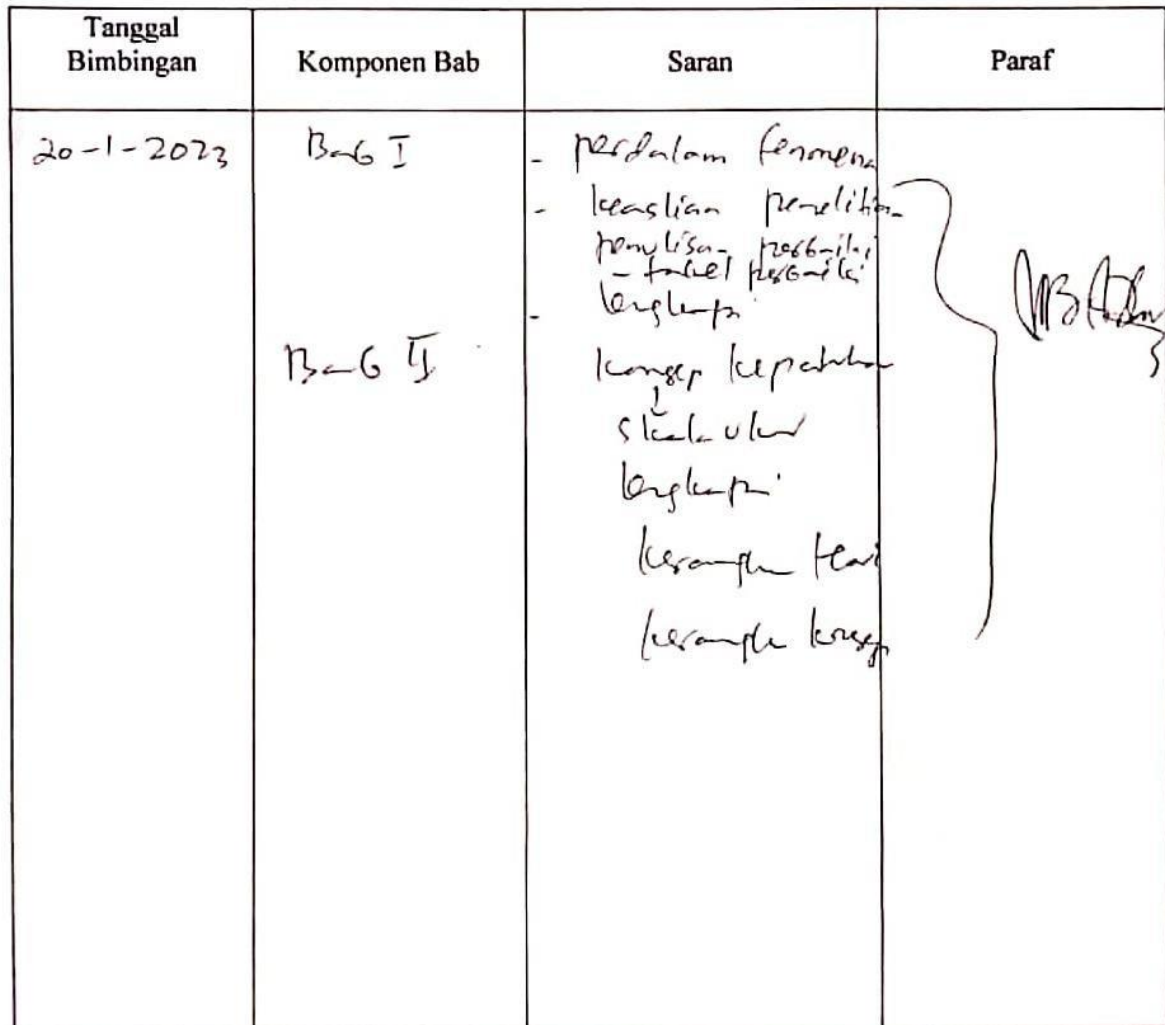 Tanggal
Bimbingan
Komponen Bab
Saran
Paraf
20-1-2023
Bab I
- perdalam fenomena
- keaslian penelitian
penulisan perbaiki
- tabel perbaiki
- lengkapi
Bab II
konsep kepatuhan
skala ukur
lengkapi
kerangka teori
kerangka konsep